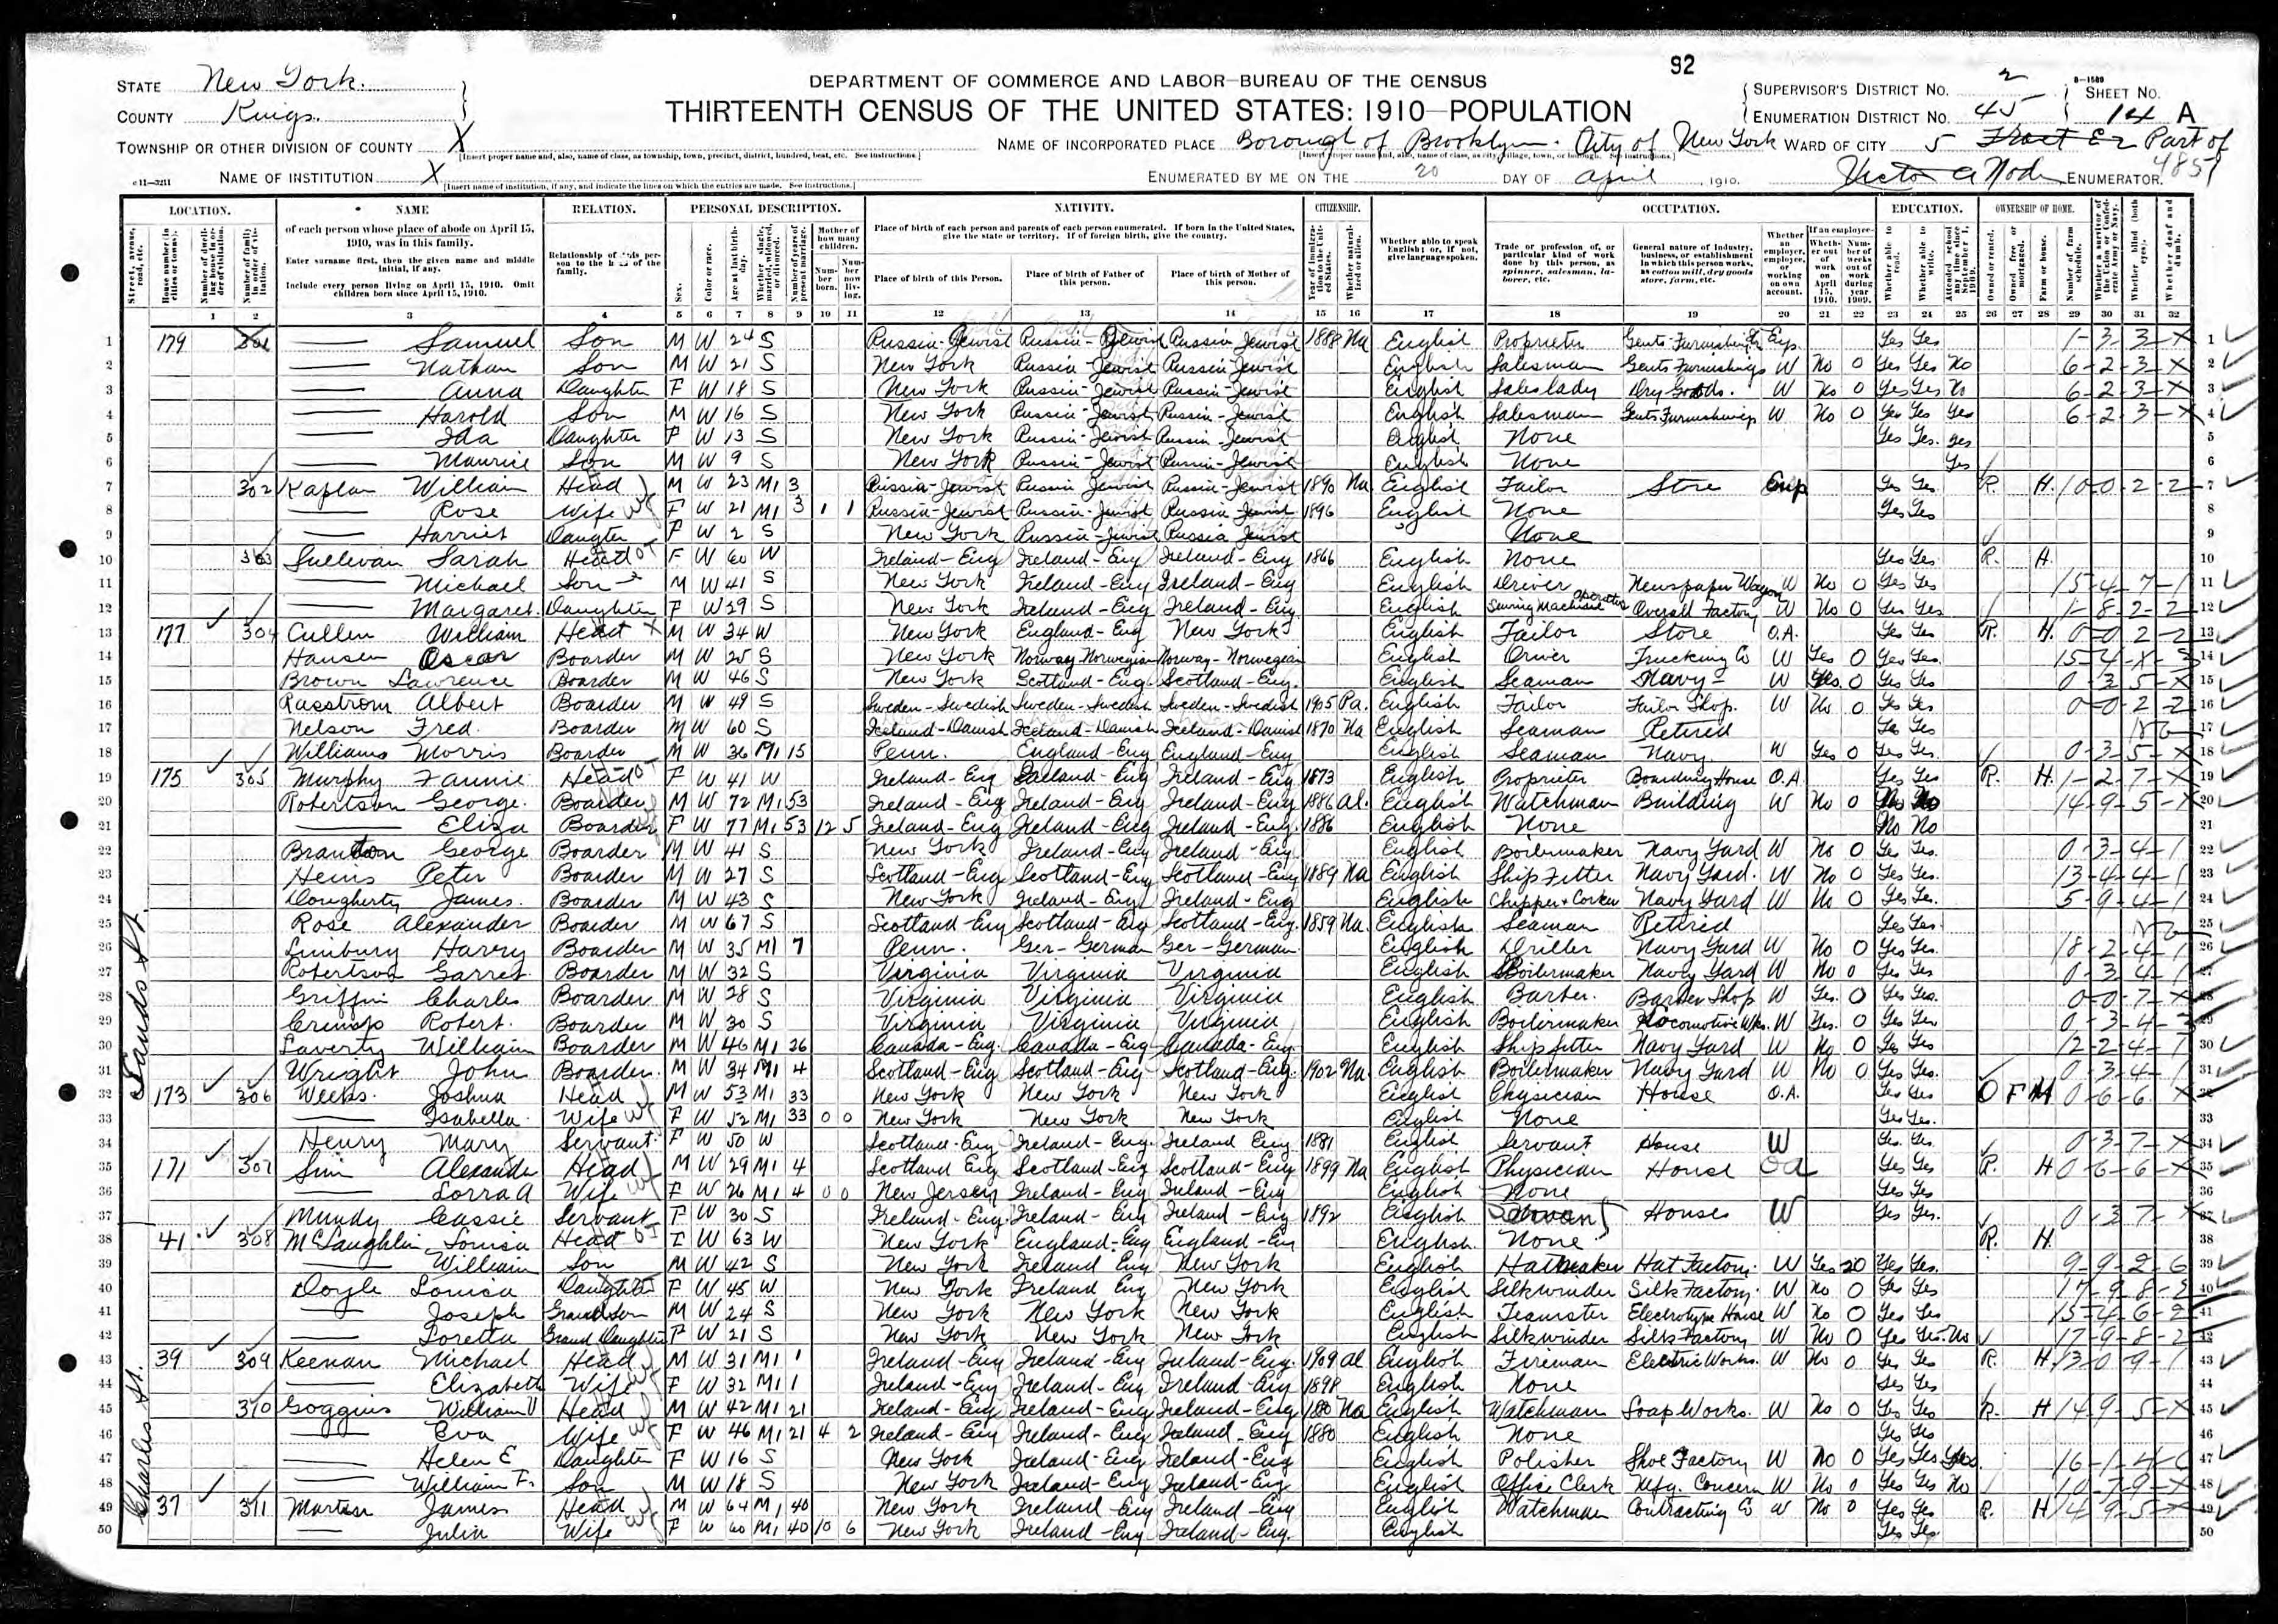 92
STATE New York.
COUNTY Kings.
TOWNSHIP OR OTHER DIVISION OF COUNTY X
[Insert proper name and, also, name of class, as township, town, precinct, district, hundred, beat, etc. See instructions.]
NAME OF INSTITUTION X
[Insert name of institution, if any, and indicate the lines on which the entries are made. See instructions.]
DEPARTMENT OF COMMERCE AND LABOR—BUREAU OF THE CENSUS
THIRTEENTH CENSUS OF THE UNITED STATES: 1910—POPULATION
NAME OF INCORPORATED PLACE Borough of Brooklyn. City of New York
ENUMERATED BY ME ON THE 20 DAY OF April, 1910. ENUMERATOR.
SUPERVISOR'S DISTRICT NO. 2
ENUMERATION DISTRICT NO. 45
SHEET NO. 14 A
WARD OF CITY 5 Part of
LOCATION. NAME RELATION. PERSONAL DESCRIPTION. NATIVITY. CITIZENSHIP. OCCUPATION. EDUCATION. OWNERSHIP OF HOME.
of each person whose place of abode on April 15, 1910, was in this family.
Enter surname first, then the given name and middle initial, if any.
Include every person living on April 15, 1910. Omit children born since April 15, 1910.
Place of birth of each person and parents of each person enumerated. If born in the United States, give the state or territory. If of foreign birth, give the country.
Place of birth of this Person. Place of birth of Father of this person. Place of birth of Mother of this person.
Whether able to speak English; or, if not, give language spoken.
Sands St.
1 179 Samuel Son M W 24 S Russia-Jewish Russia-Jewish Russia Jewish 1888 Na English Proprietor Gents Furnishing Emp. Yes Yes 1-3-3-X
2 Nathan Son M W 21 S New York Russia-Jewish Russia Jewish English Salesman Gents Furnishings W No 0 Yes Yes No 6-2-3-X
3 Anna Daughter F W 18 S New York Russia-Jewish Russia-Jewish English Saleslady Dry Goods. W No 0 Yes Yes No 6-2-3-X
4 Harold Son M W 16 S New York Russia-Jewish Russia-Jewish English Salesman Gents Furnishings W No 0 Yes Yes Yes 6-2-3-X
5 Ida Daughter F W 13 S New York Russia-Jewish Russia-Jewish English None Yes Yes. Yes
6 Maurice Son M W 9 S New York Russia-Jewish Russia-Jewish English None Yes
7 302 Kaplan William Head M W 23 M1 3 Russia-Jewish Russia Jewish Russia-Jewish 1890 Na English Tailor Store Emp Yes Yes R. H. 0-0-2-2
8 Rose Wife F W 21 M1 3 1 1 Russia-Jewish Russia-Jewish Russia Jewish 1896 English None Yes Yes
9 Harriet Daughter F W 2 S New York Russia-Jewish Russia Jewish None
10 303 Sullivan Sarah Head F W 60 W Ireland-Eng Ireland-Eng Ireland-Eng 1866 English None Yes Yes R. H.
11 Michael Son M W 41 S New York Ireland-Eng Ireland-Eng English Driver Newspaper Wagon W No 0 Yes Yes 15-4-7-1
12 Margaret. Daughter F W 29 S New York Ireland-Eng Ireland-Eng English Sewing Machine Operator Overall Factory W No 0 Yes Yes 1-8-2-2
13 177 304 Cullen William Head M W 34 W New York England-Eng New York English Tailor Store O.A. Yes Yes R. H. 0-0-2-2
14 Hansen Oscar Boarder M W 25 S New York Norway Norwegian Norway-Norwegian English Driver Trucking Co W Yes 0 Yes Yes. 15-4-X-3
15 Brown Lawrence Boarder M W 46 S New York Scotland-Eng. Scotland-Eng. English Seaman Navy W Yes. 0 Yes Yes 0-3-5-X
16 Rasstrom Albert Boarder M W 49 S Sweden-Swedish Sweden-Swedish Sweden-Swedish 1905 Pa. English Tailor Tailor Shop. W No 0 Yes Yes 0-0-2-2
17 Nelson Fred. Boarder M W 60 S Iceland-Danish Iceland-Danish Iceland-Danish 1870 Na English Seaman Retired Yes Yes
18 Williams Morris Boarder M W 36 M1 15 Penn. England-Eng England-Eng English Seaman Navy W Yes 0 Yes Yes. 0-3-5-X
19 175 305 Murphy Fannie Head F W 41 W Ireland-Eng Ireland-Eng Ireland-Eng 1873 English Proprietor Boarding House O.A. Yes Yes R. H. 1-2-7-X
20 Robertson George. Boarder M W 72 M1 53 Ireland-Eng Ireland-Eng Ireland-Eng 1886 Al. English Watchman Building W No 0 No No 14-9-5-X
21 Eliza Boarder F W 77 M1 53 12 5 Ireland-Eng Ireland-Eng Ireland-Eng. 1886 English None No No
22 George Boarder M W 41 S New York Ireland-Eng Ireland-Eng English Boilermaker Navy Yard W No 0 Yes Yes. 0-3-4-1
23 Heins Peter Boarder M W 27 S Scotland-Eng Scotland-Eng Scotland-Eng 1889 Na English Ship Fitter Navy Yard. W No 0 Yes Yes. 13-4-4-1
24 Dougherty James. Boarder M W 43 S New York Ireland-Eng Ireland-Eng English Chipper + Corker Navy Yard W No 0 Yes Yes. 5-9-4-1
25 Rose Alexander Boarder M W 67 S Scotland-Eng Scotland-Eng Scotland-Eng. 1859 Na. English Seaman Retired Yes Yes
26 Harry Boarder M W 35 M1 7 Penn. Ger-German Ger-German English Driller Navy Yard W No 0 Yes Yes. 18-2-4-1
27 Robertson Garret Boarder M W 32 S Virginia Virginia Virginia English Boilermaker Navy Yard W No 0 Yes Yes 0-3-4-1
28 Griffin Charles Boarder M W 28 S Virginia Virginia Virginia English Barber. Barber Shop W Yes. 0 Yes Yes. 0-0-7-X
29 Robert. Boarder M W 30 S Virginia Virginia Virginia English Boilermaker Locomotive Wks. W Yes. 0 Yes Yes 0-3-4-
30 Laverty William Boarder M W 46 M1 26 Canada-Eng. Canada-Eng Canada-Eng. English Ship fitter Navy Yard W No 0 Yes Yes 12-2-4-1
31 Wright John Boarder. M W 34 M1 4 Scotland-Eng Scotland-Eng Scotland-Eng. 1902 Na English Boilermaker Navy Yard W No 0 Yes Yes. 0-3-4-1
32 173 306 Weeks. Joshua Head M W 53 M1 33 New York New York New York English Physician House O.A. Yes Yes O F H 0-6-6-X
33 Isabella. Wife F W 52 M1 33 0 0 New York New York New York English None Yes Yes.
34 Henry Mary Servant F W 50 W Scotland-Eng Ireland-Eng. Ireland Eng 1881 English Servant House W Yes. Yes 0-3-7-X
35 171 307 Sim Alexander Head M W 29 M1 4 Scotland Eng Scotland-Eng Scotland-Eng 1899 Na English Physician House Oa Yes Yes R. H 0-6-6-X
36 Lorra A Wife F W 26 M1 4 0 0 New Jersey Ireland-Eng Ireland-Eng English None Yes Yes
37 Mundy Cassie Servant F W 30 S Ireland-Eng. Ireland-Eng Ireland-Eng 1892 English Servant House W Yes Yes. 0-3-7-X
Charles St.
38 41 308 McLaughlin Louisa Head F W 63 W New York England-Eng England-Eng English. None R. H.
39 William Son M W 42 S New York Ireland Eng New York English Hatmaker Hat Factory. W Yes 20 Yes Yes. 9-9-2-6
40 Doyle Louisa Daughter F W 45 W New York Ireland Eng New York English Silkwinder Silk Factory. W No 0 Yes Yes 17-9-8-2
41 Joseph Grandson M W 24 S New York New York New York English Teamster Electrotype House W No 0 Yes Yes 15-4-6-2
42 Loretta Grand Daughter F W 21 S New York New York New York English Silkwinder Silk Factory W No 0 Yes Yes. No 17-9-8-2
43 39 309 Keenan Michael Head M W 31 M1 1 Ireland-Eng Ireland-Eng Ireland-Eng. 1909 al English Fireman Electric Works. W No 0 Yes Yes R. H 13-0-9-1
44 Elizabeth Wife F W 32 M1 1 Ireland-Eng Ireland-Eng Ireland-Eng 1898 English None Yes Yes
45 310 Goggins William Head M W 42 M1 21 Ireland-Eng Ireland-Eng Ireland-Eng 1880 Na English Watchman Soap Works. W No 0 Yes Yes R. H 14-9-5-X
46 Eva Wife F W 46 M1 21 4 2 Ireland-Eng Ireland-Eng Ireland-Eng 1880 English None Yes Yes
47 Helen E Daughter F W 16 S New York Ireland-Eng Ireland-Eng English Polisher Shoe Factory W No 0 Yes Yes Yes. 16-1-4-
48 William F. Son M W 18 S New York Ireland-Eng Ireland-Eng English Office Clerk Mfg. Concern W No 0 Yes Yes No 10-7-9-X
49 37 311 Martin James Head M W 64 M1 40 New York Ireland Eng Ireland-Eng English Watchman Contracting Co W No 0 Yes Yes R. H 14-9-5-X
50 Julia Wife F W 60 M1 40 10 6 New York Ireland-Eng Ireland-Eng. English Yes Yes.